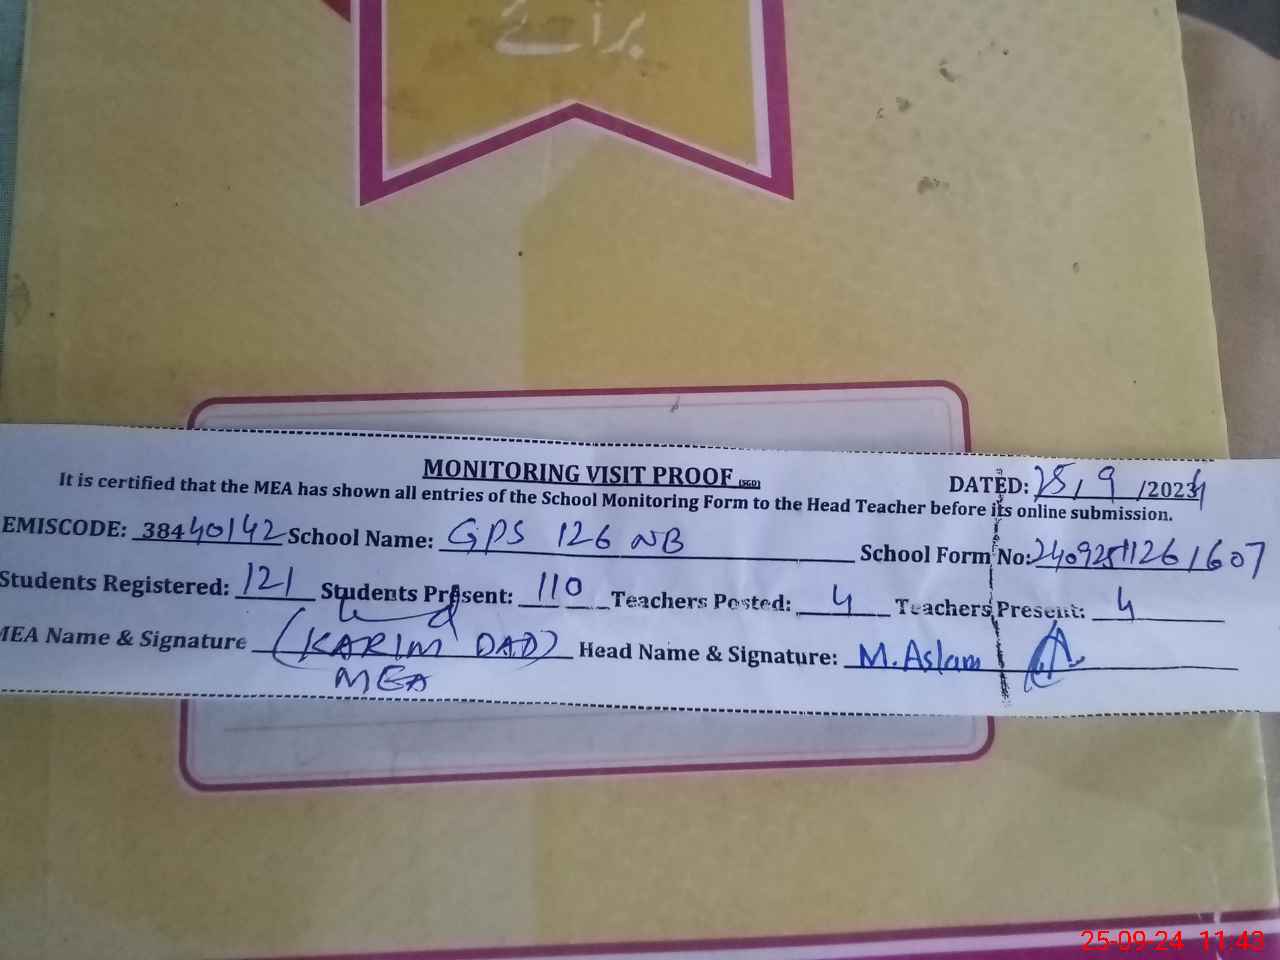 برائے
MONITORING VISIT PROOF (SGD)
DATED: 25/9/2024
It is certified that the MEA has shown all entries of the School Monitoring Form to the Head Teacher before its online submission.
EMISCODE: 38440142 School Name: GPS 126 NB School Form No: 240925111261607
Students Registered: 121 Students Present: 110 Teachers Posted: 4 Teachers Present: 4
MEA Name & Signature (KARIM DAD) Head Name & Signature: M.Aslam
MEA
25-09-24 11:43